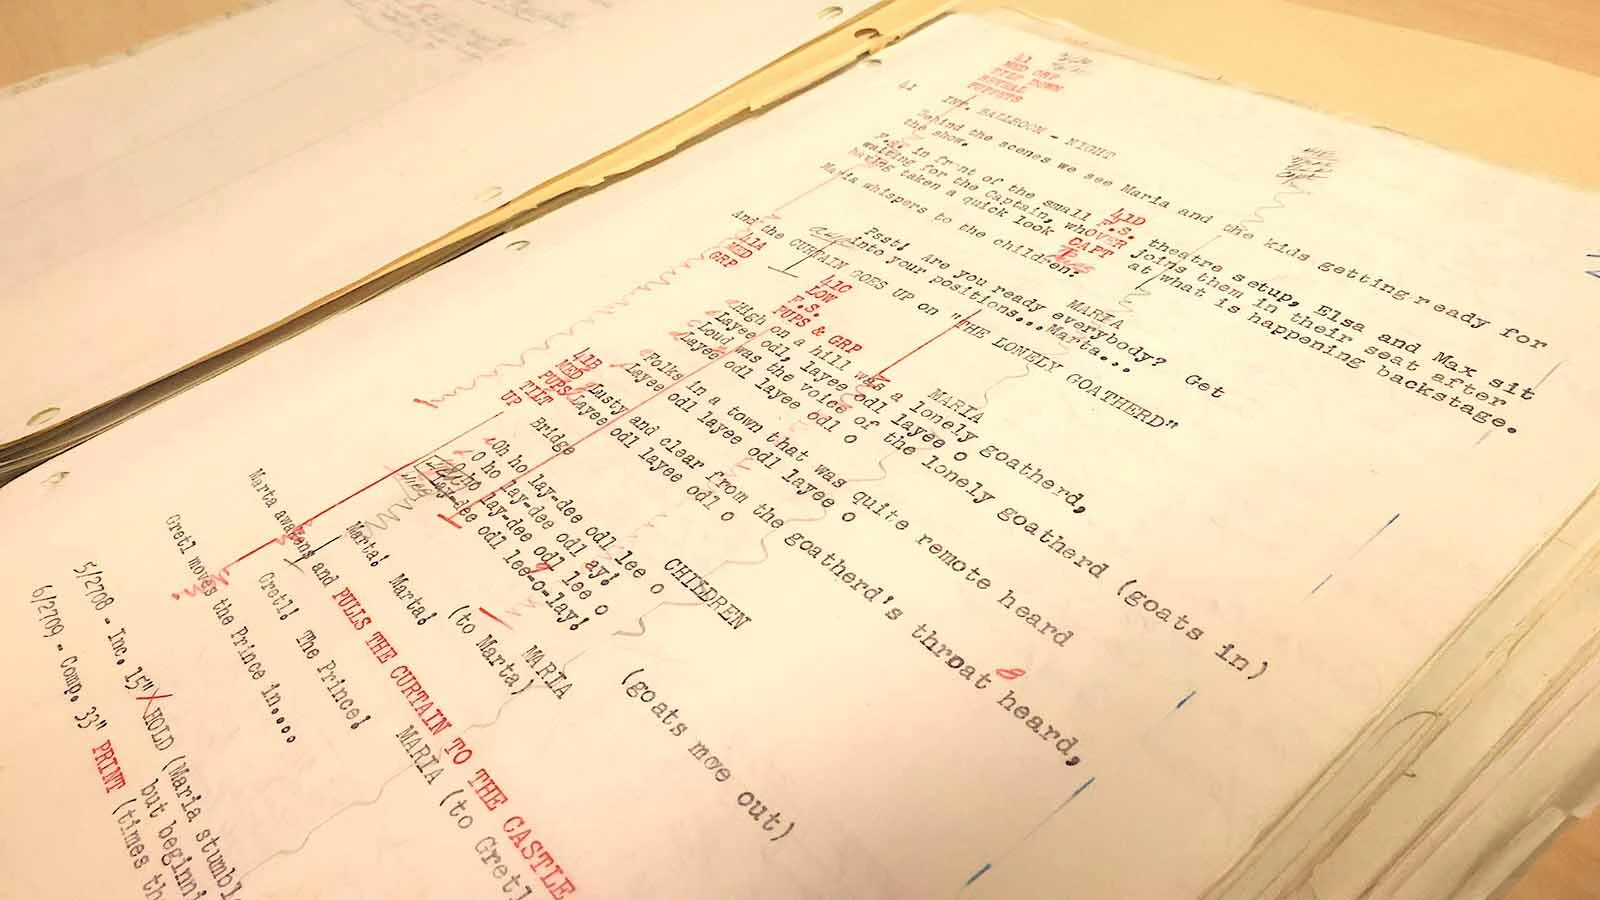 41
MED GRP
TILT DOWN
PUPPETS
41 INT. BALLROOM - NIGHT
Behind the scenes we see Maria and the kids getting ready for
the show.
F.S. in front of the small theatre setup, Elsa and Max sit
waiting for the Captain, who joins them in their seat after
having taken a quick look at what is happening backstage.
41D
F.S.
OVER
CAPT
Maria whispers to the children:
MARIA
Psst! Are you ready everybody? Get
into your positions...Marta...
And the CURTAIN GOES UP on "THE LONELY GOATHERD"
41A
MED
GRP
41C
LOW
F.S.
PUPS & GRP
MARIA
High on a hill was a lonely goatherd,
Layee odl, layee odl layee o
Loud was the voice of the lonely goatherd (goats in)
Layee odl layee odl o
Folks in a town that was quite remote heard
Layee odl layee odl layee o
Lusty and clear from the goatherd's throat heard,
Layee odl layee odl o
41B
MED
PUPS
TILT
UP
Bridge
CHILDREN
Oh ho lay-dee odl lee o (goats move out)
O ho lay-dee odl ay!
O ho lay-dee odl lee o
Lay-dee odl lee-o-lay!
MARIA
(to Marta)
Marta! Marta!
Marta awakens and PULLS THE CURTAIN TO THE CASTLE
MARIA (to Gretl
Gretl! The Prince!
Gretl moves the Prince in....
5/2708 - Inc. 15" HOLD (Maria stumbl
but beginni
6/2709 - Comp. 33" PRINT (times th